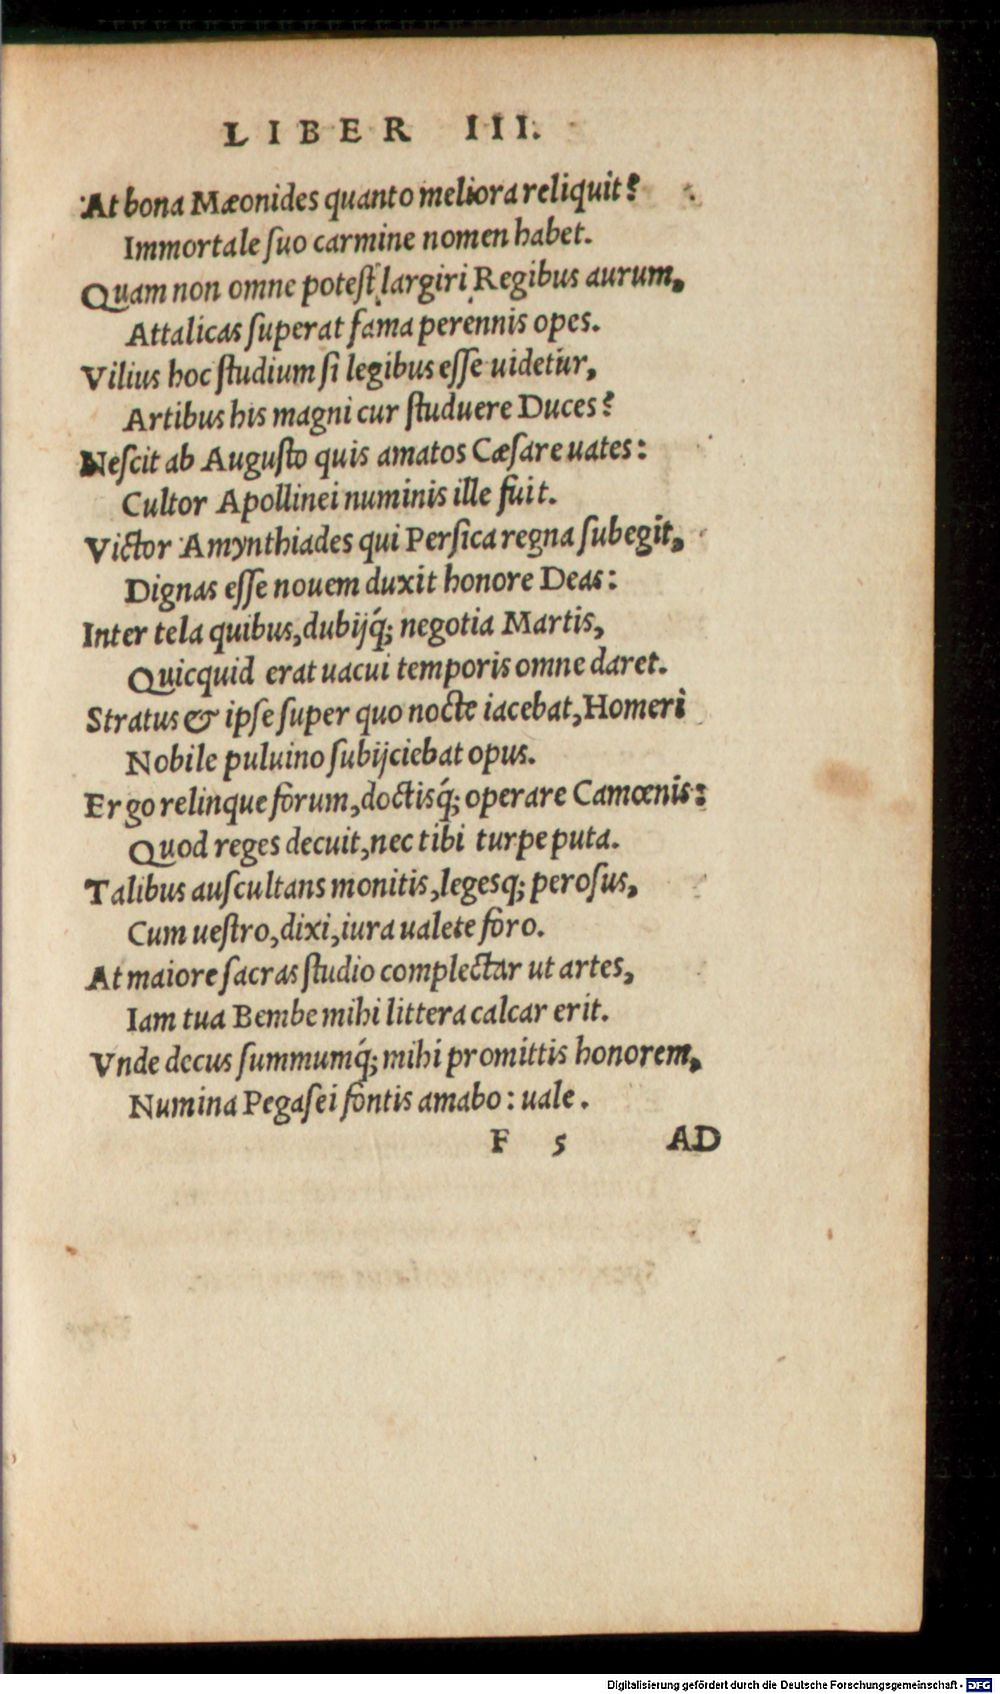 LIBER III.
At bona Mæonides quanto meliora reliquit?
Immortale suo carmine nomen habet.
Quam non omne potest largiri Regibus aurum,
Attalicas superat fama perennis opes.
Vilius hoc studium si legibus esse uidetur,
Artibus his magni cur studuere Duces?
Nescit ab Augusto quis amatos Cæsare uates:
Cultor Apollinei numinis ille fuit.
Victor Amynthiades qui Persica regna subegit,
Dignas esse nouem duxit honore Deas:
Inter tela quibus, dubijq́; negotia Martis,
Quicquid erat uacui temporis omne daret.
Stratus & ipse super quo nocte iacebat, Homeri
Nobile puluino subijciebat opus.
Ergo relinque forum, doctisq́; operare Camœnis:
Quod reges decuit, nec tibi turpe puta.
Talibus auscultans monitis, legesq; perosus,
Cum uestro, dixi, iura ualete foro.
At maiore sacras studio complectar ut artes,
Iam tua Bembe mihi littera calcar erit.
Vnde decus summumq́; mihi promittis honorem,
Numina Pegasei fontis amabo: uale.
F 5 AD
Digitalisierung gefördert durch die Deutsche Forschungsgemeinschaft - DFG